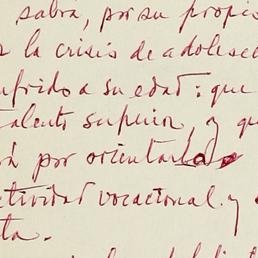 sabrá, por su propio
la crisis de adolesce
ufrido a su edad: que
talento superior, y qu
rá por orientarlo
ctividad vocacional y
ta.